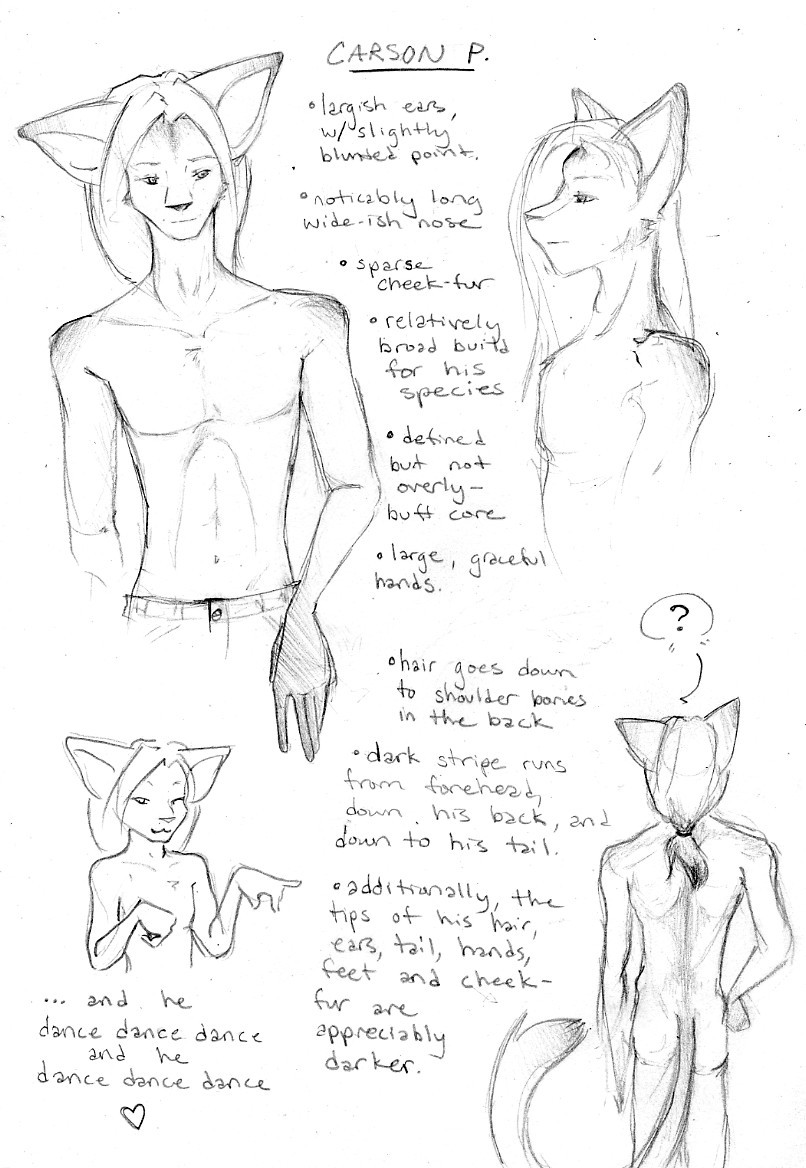 CARSON P.
• largish ears,
w/ slightly
blunted point.
• noticably long
wide-ish nose
• sparse
cheek-fur
• relatively
broad build
for his
species
• defined
but not
overly-
buff core
• large, graceful
hands.
?
• hair goes down
to shoulder bones
in the back
• dark stripe runs
from forehead,
down his back, and
down to his tail.
• additionally, the
tips of his hair,
ears, tail, hands,
feet and cheek-
fur are
appreciably
darker.
... and he
dance dance dance
and he
dance dance dance
♡